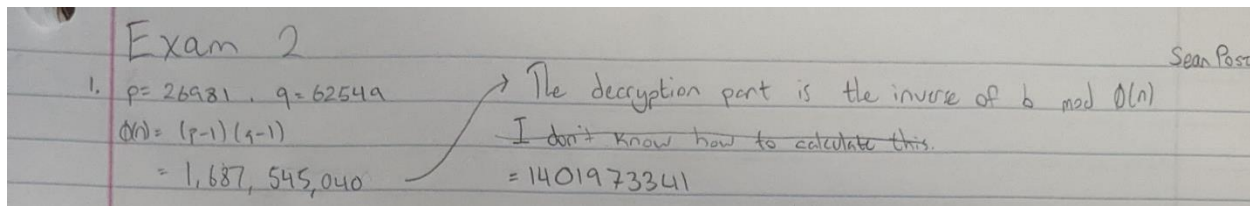 Exam 2
Sean Post
1. p= 26981, q= 62549
Φ(n)= (p-1)(q-1)
= 1,687,545,040
→ The decryption part is the inverse of b mod Φ(n)
I don't know how to calculate this.
= 1401973341